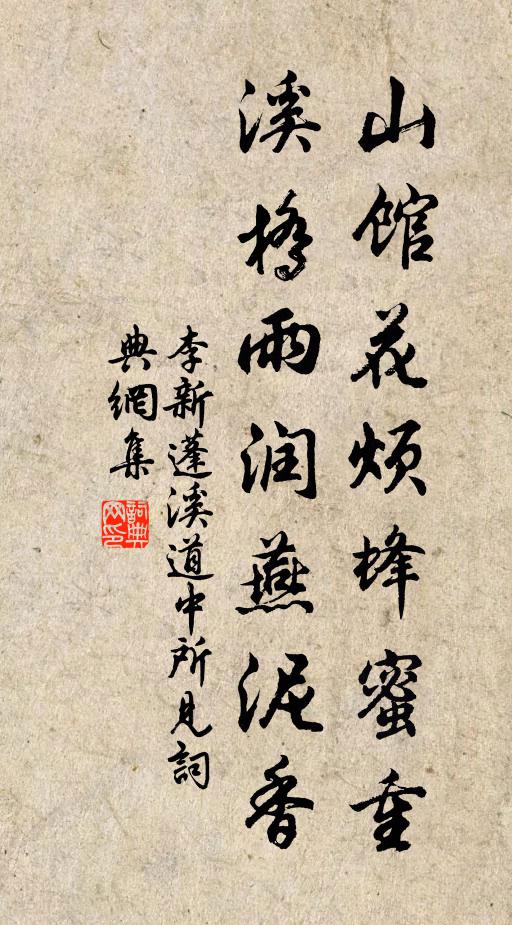 山馆花烦蜂蜜重
溪桥雨润燕泥香
李新蓬溪道中所见詞
典網集
詞典
网印